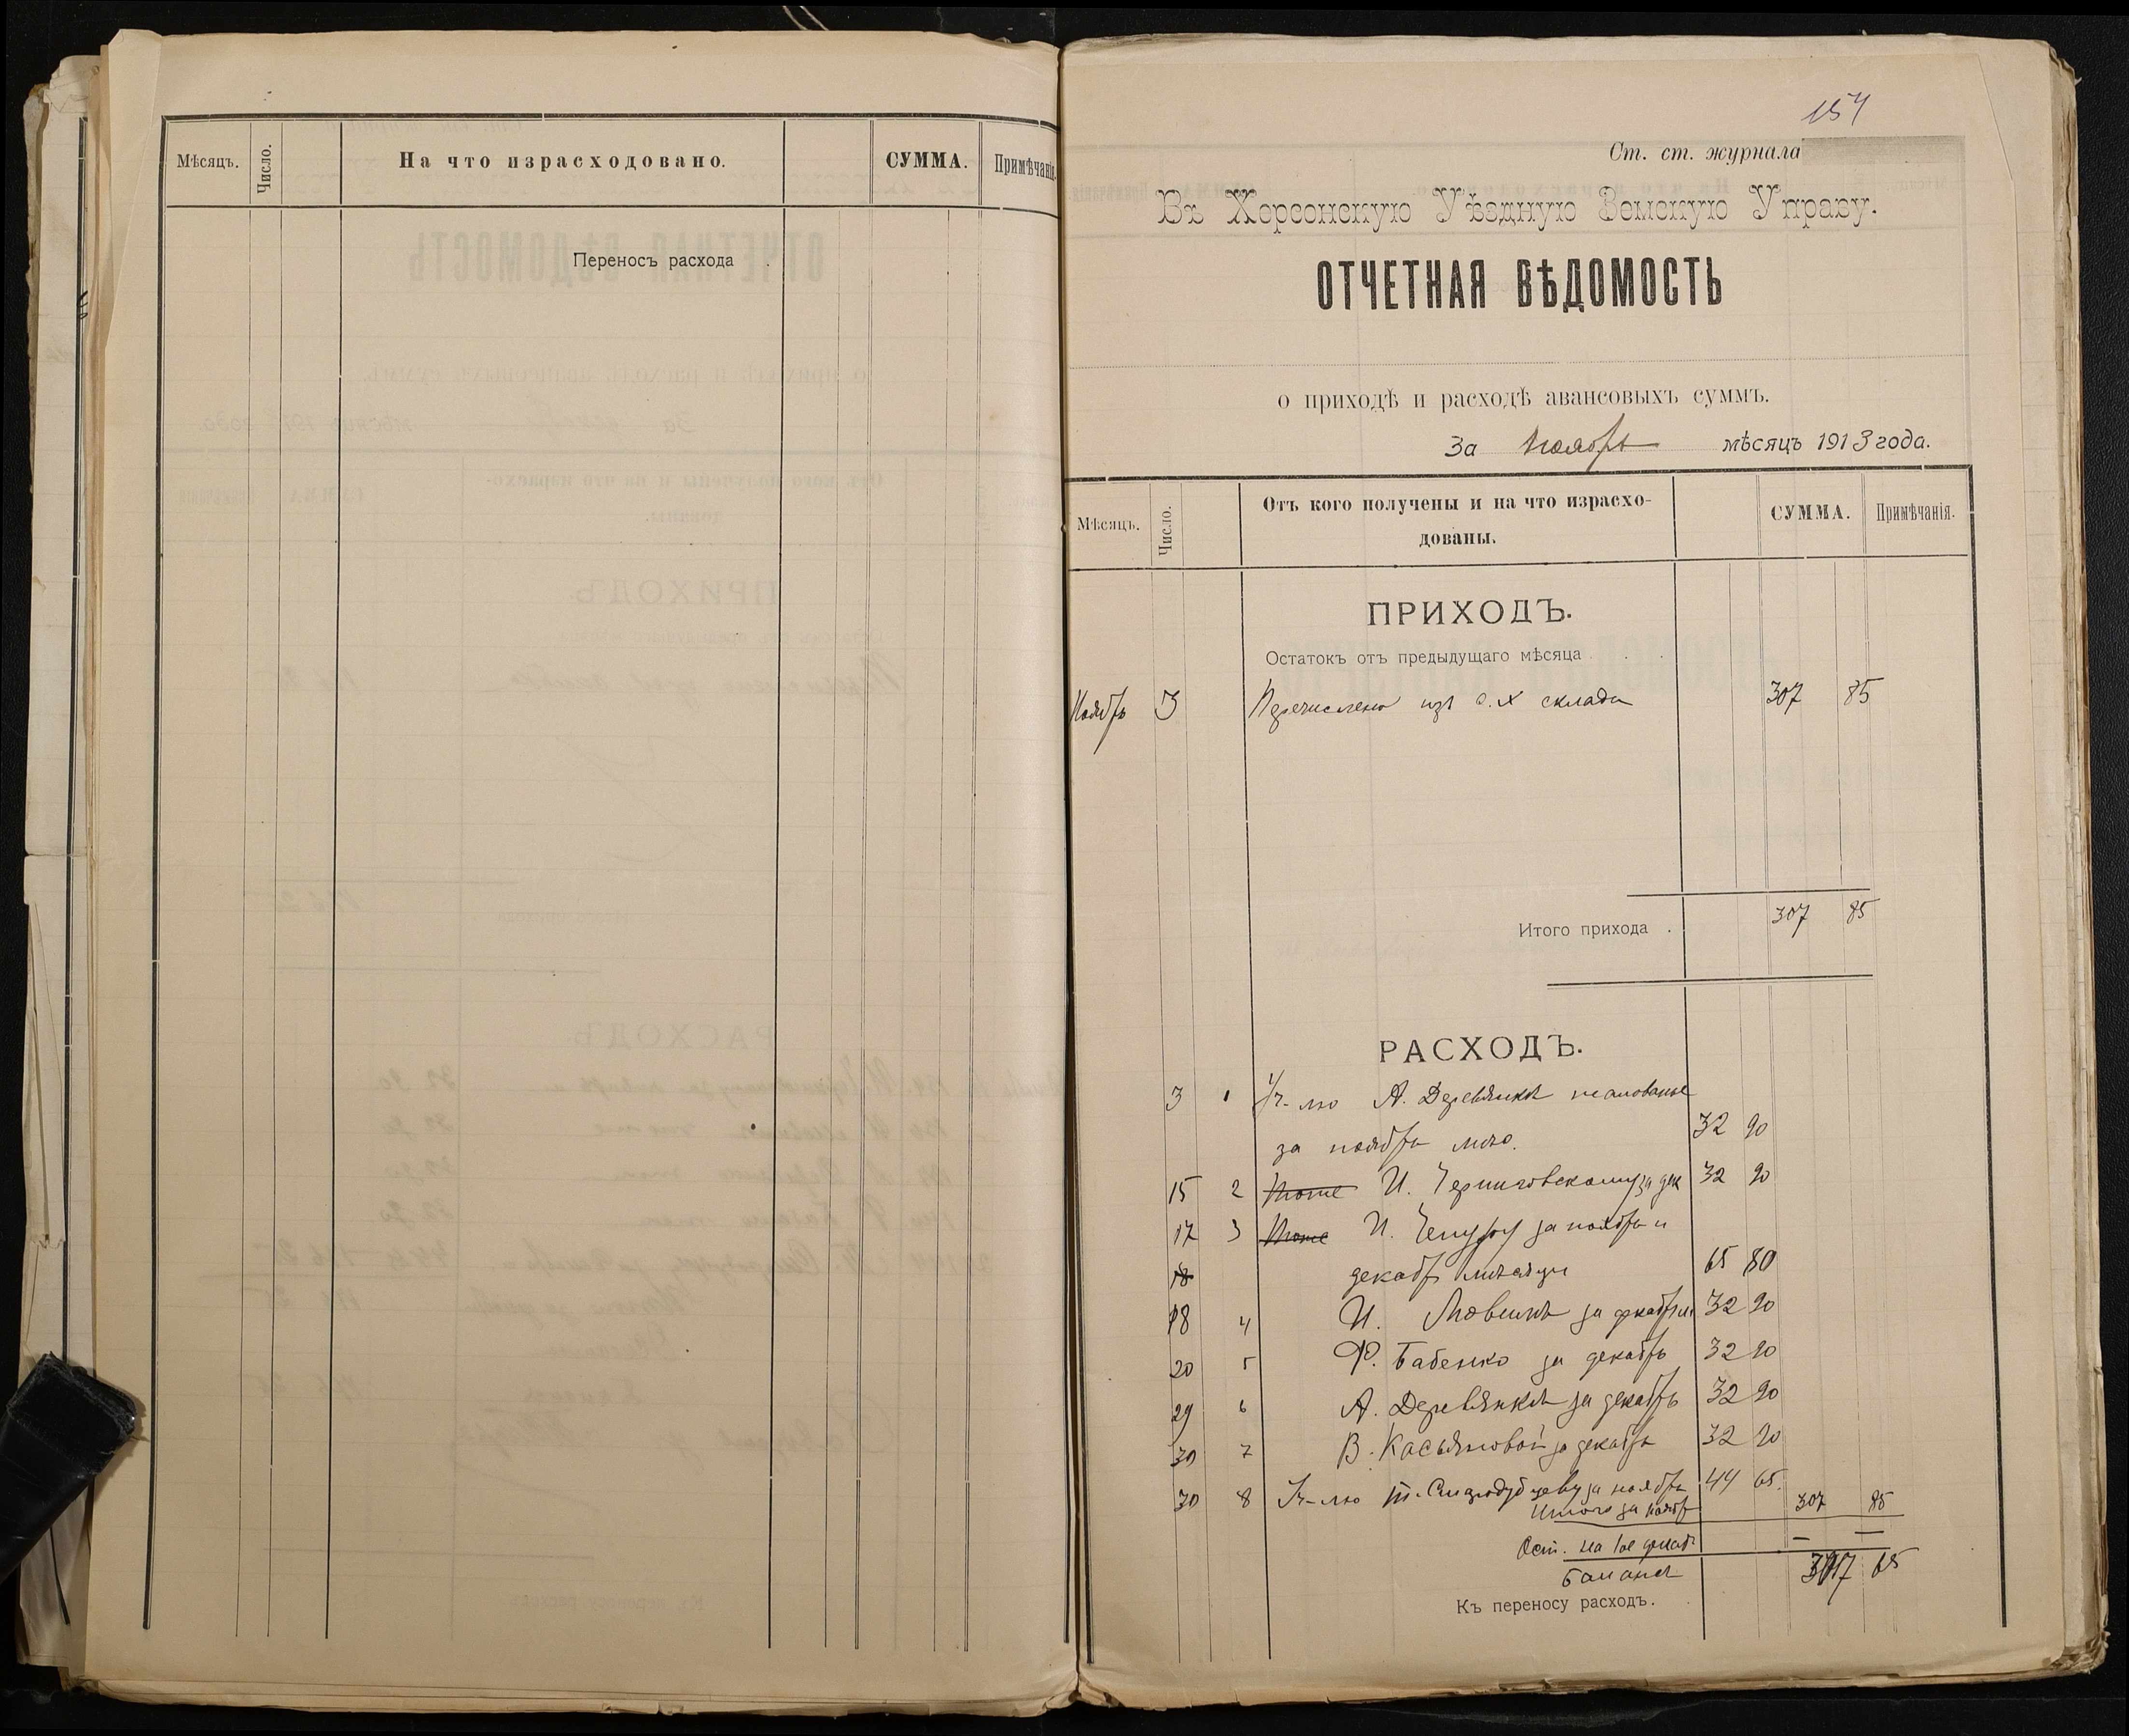 Мѣсяцъ.
Число.
На что израсходовано.
СУММА.
Примѣчанія.
Переносъ расхода .
154
Ст. ст. журнала
Въ Херсонскую Уѣздную Земскую Управу.
ОТЧЕТНАЯ ВѢДОМОСТЬ
о приходѣ и расходѣ авансовыхъ суммъ.
За Ноябрь мѣсяцъ 1913 года.
Мѣсяцъ.
Число.
Отъ кого получены и на что израсхо-
дованы.
СУММА.
Примѣчанія.
ПРИХОДЪ.
Остатокъ отъ предыдущаго мѣсяца . . .
Ноябрь 3 Перечислено изъ с.х склада 307 85
Итого прихода . 307 85
РАСХОДЪ.
3 1 А. Деревянкѣ жалованье
за ноябрь 32 90
15 2 Тоже И. Черниговскому за дек 32 90
17 3 Тоже И. за ноябрь и
18 декабрь мѣсяцы 65 80
18 4 И. за декабрь 32 90
20 5 Ф. Бабенко за декабрь 32 90
29 6 А. Деревянкѣ за декабрь 32 90
30 7 В. Касьяновой за декабрь 32 90
30 8 за ноябрь 44 65.
Итого за нояб 307 85
Ост. на 1ое декаб — —
Балансъ 307 65
Къ переносу расходъ. .